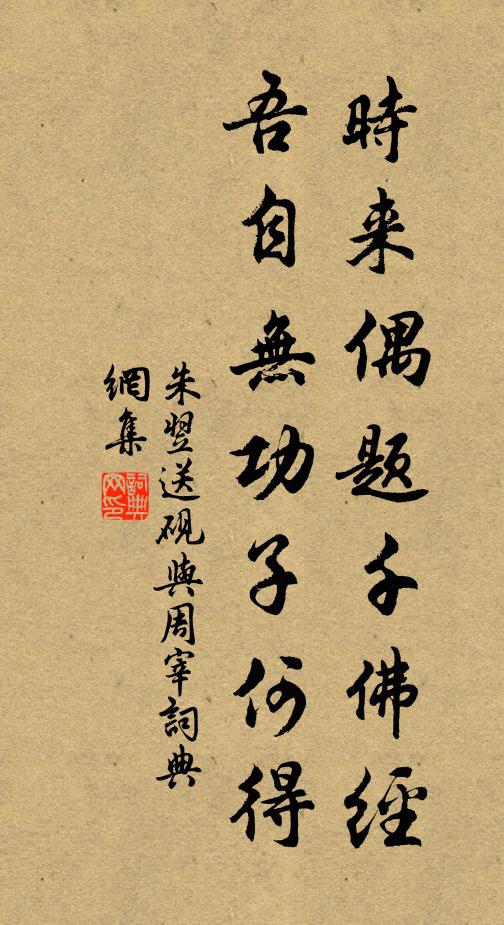 時来偶題千佛經
吾自無功子何得
朱翌送硯與周宰詞典
網集
詞典
网印